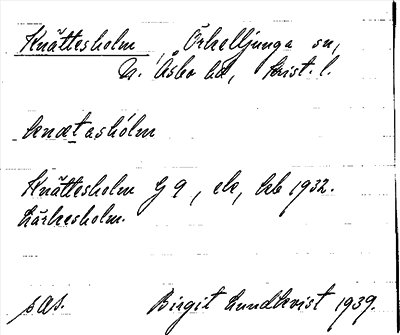 Knättesholm, Örkelljunga sn,
N. Åsbo hd, Krist. l.
knætashólm
Knättesholm G 9, ek, kb 1932.
Lärkesholm.
s as.    Birgit Lundkvist 1939.